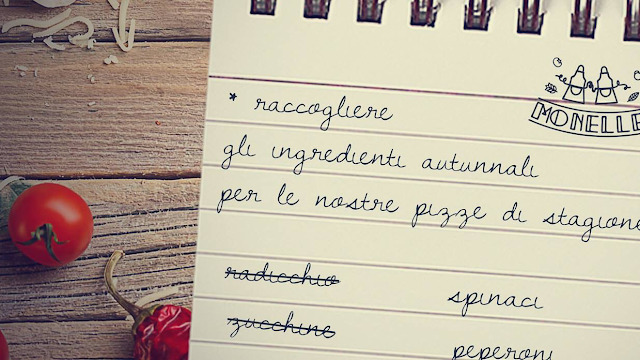 MONELLE
* raccogliere
gli ingredienti autunnali
per le nostre pizze di stagione
radicchio
spinaci
zucchine
peperoni